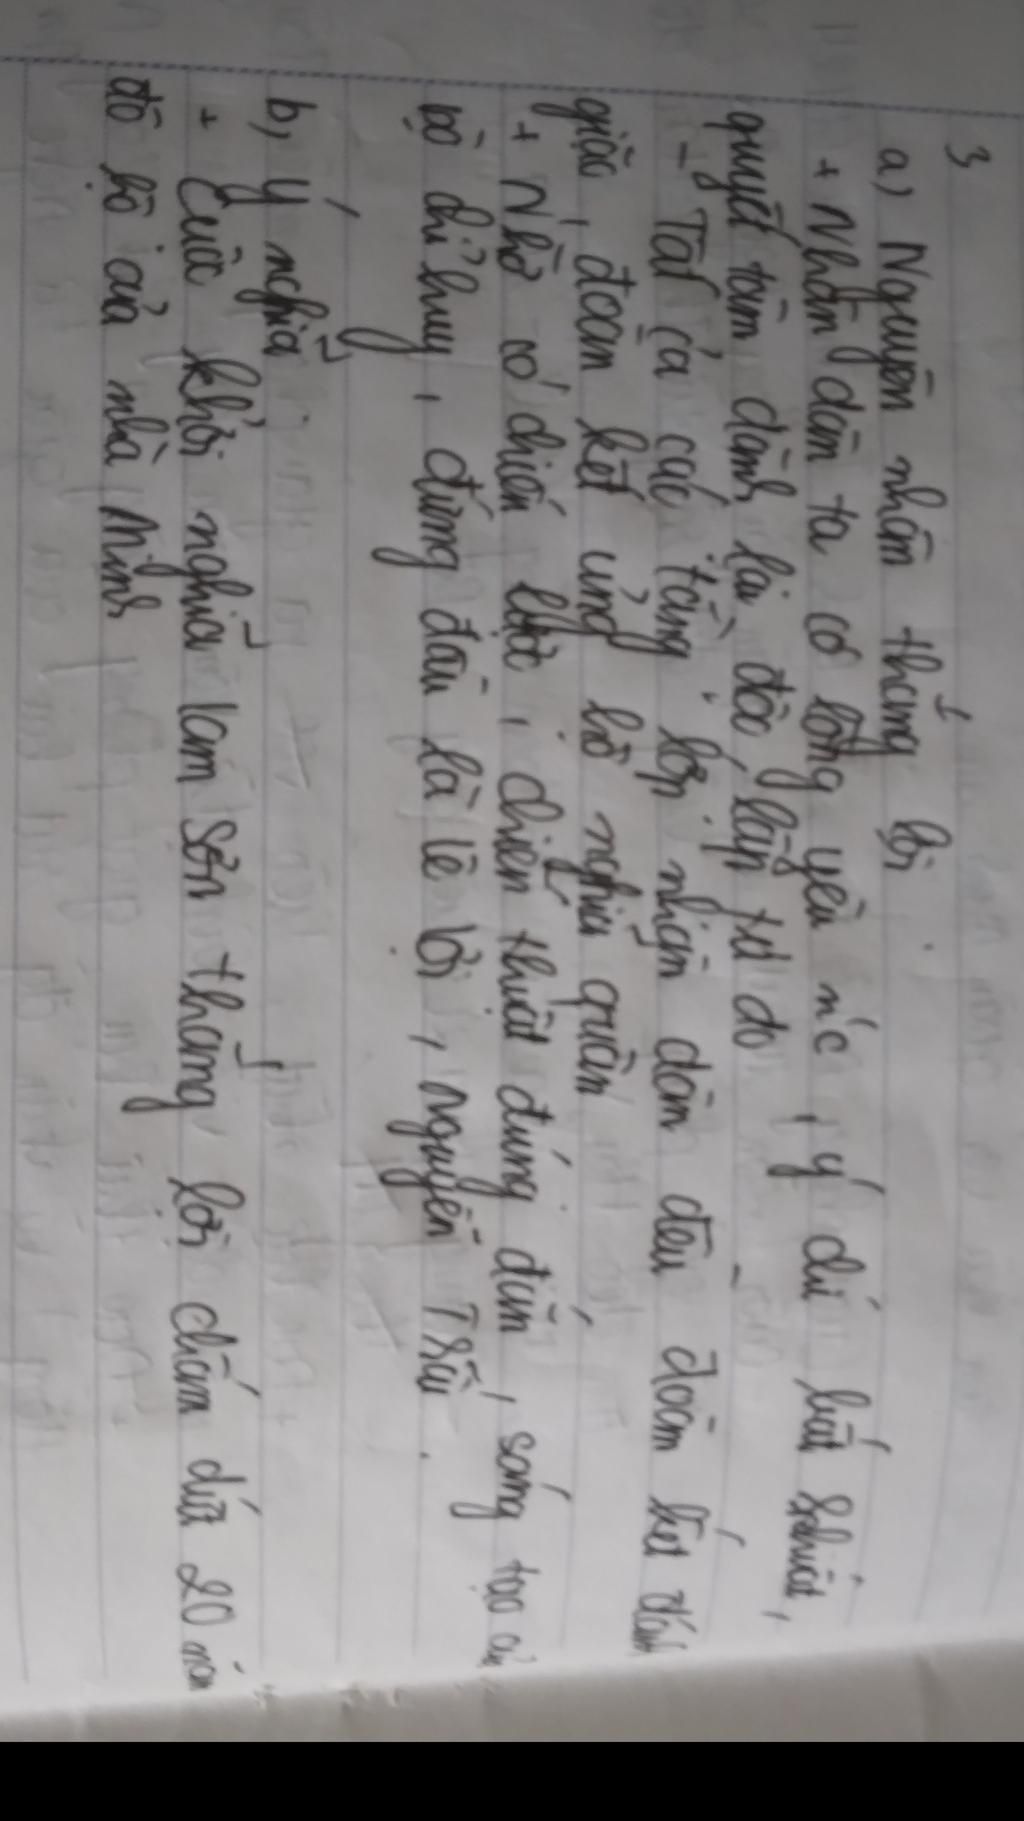 3
a) Nguyên nhân thắng lợi
+ Nhân dân ta có lòng yêu n'c, ý chí bất khuất,
quyết tâm dành lại độc lập tự do
- Tất cả các tầng lớp nhân dân đều đoàn kết đánh
giặc, đoàn kết ủng hộ nghĩa quân
+ Nhờ có chiến lược, chiến thuật đúng đắn, sáng tạo của
bộ chỉ huy, đứng đầu là lê lợi, nguyễn Trãi.
b, Ý nghĩa
+ Cuộc khởi nghĩa lam sơn thắng lợi chấm dứt 20 năm
đô hộ của nhà Minh